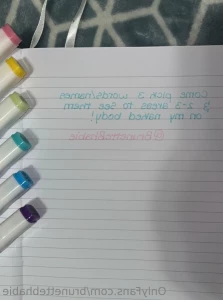 Come pick 3 words/names
& 2-3 areas to see them
on my naked body!
@BrunetteBhabie
OnlyFans.com/brunettebhabie